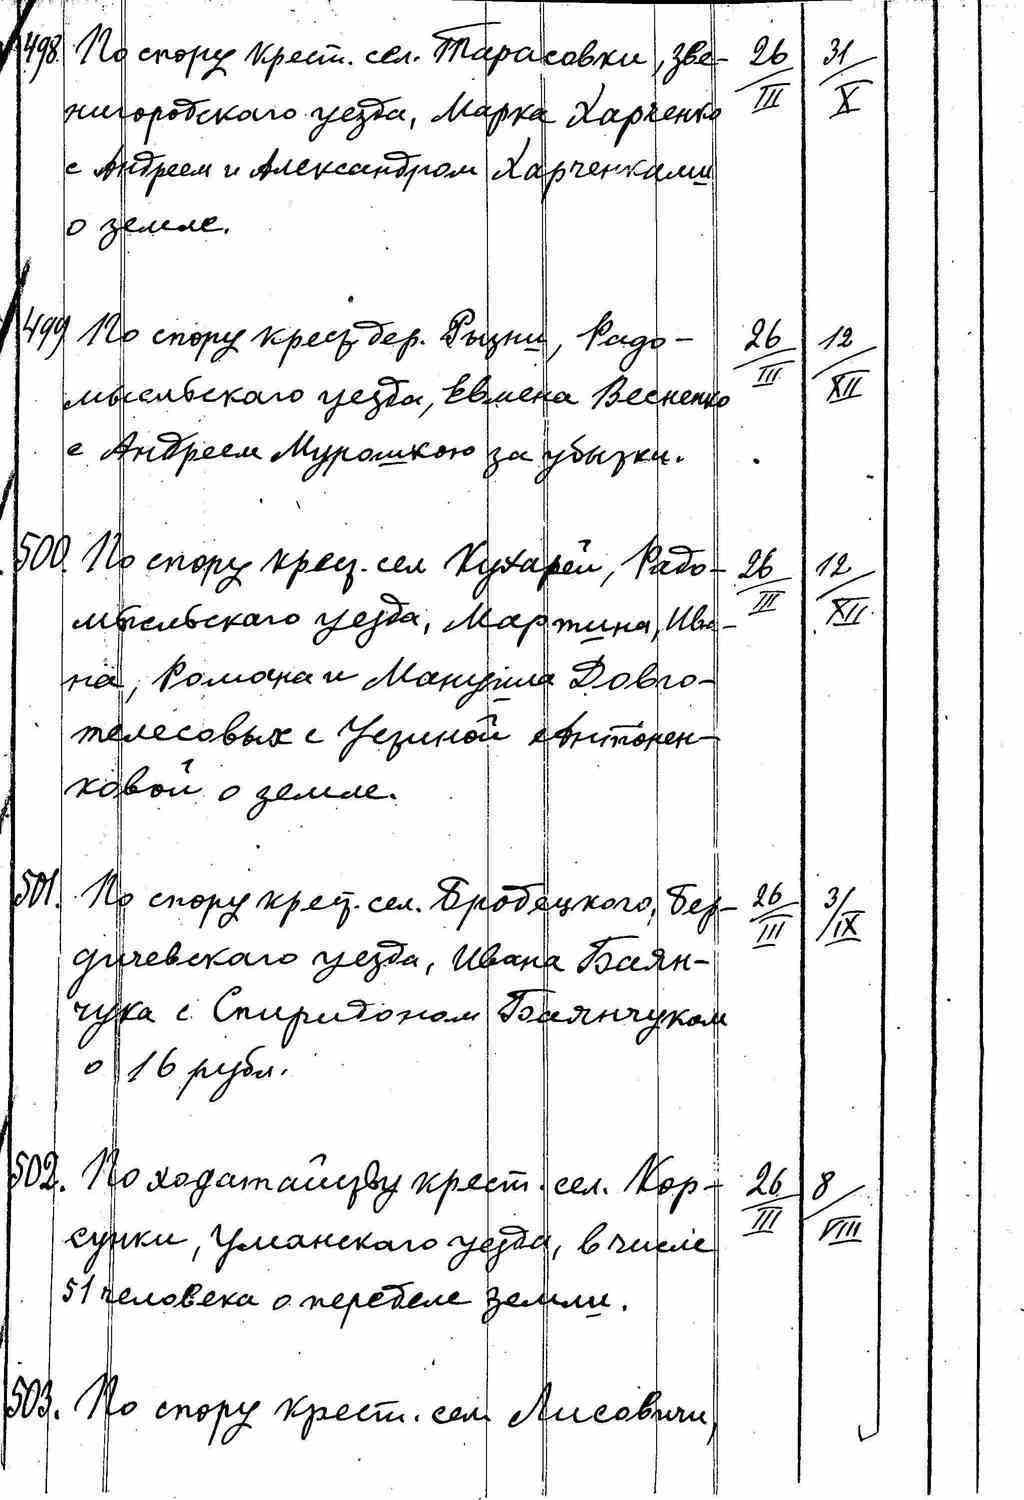 498. По спору крест. сел. Тарасовки, Зве- 26/III 31/X
нигородского уезда, Марка Харченко
с Андреем и Александром Харченками
о земле.
499 По спору крест. дер. Рызни, Радо- 26/III 12/XII
мысльского уезда, Евмена Весненко
с Андреем Мурашкою за убытки.
500. По спору крест. сел Кухарей, Радо- 26/III 12/XII
мысльского уезда, Мартина, Ива-
на, Романа и Мануила Довго-
телесовых с Устиной Антонен-
ковой о земле.
501. По спору крест. сел. Бродецкого, Бер- 26/III 3/IX
дичевского уезда, Ивана Баян-
чука с Спиридоном Баянчуком
о 16 рубл.
502. По ходатайству крест. сел. Кор- 26/III 8/VIII
сунки, Уманского уезда, в числе
51 человека о переделе земли.
503. По спору крест. сел. Лисовичи,